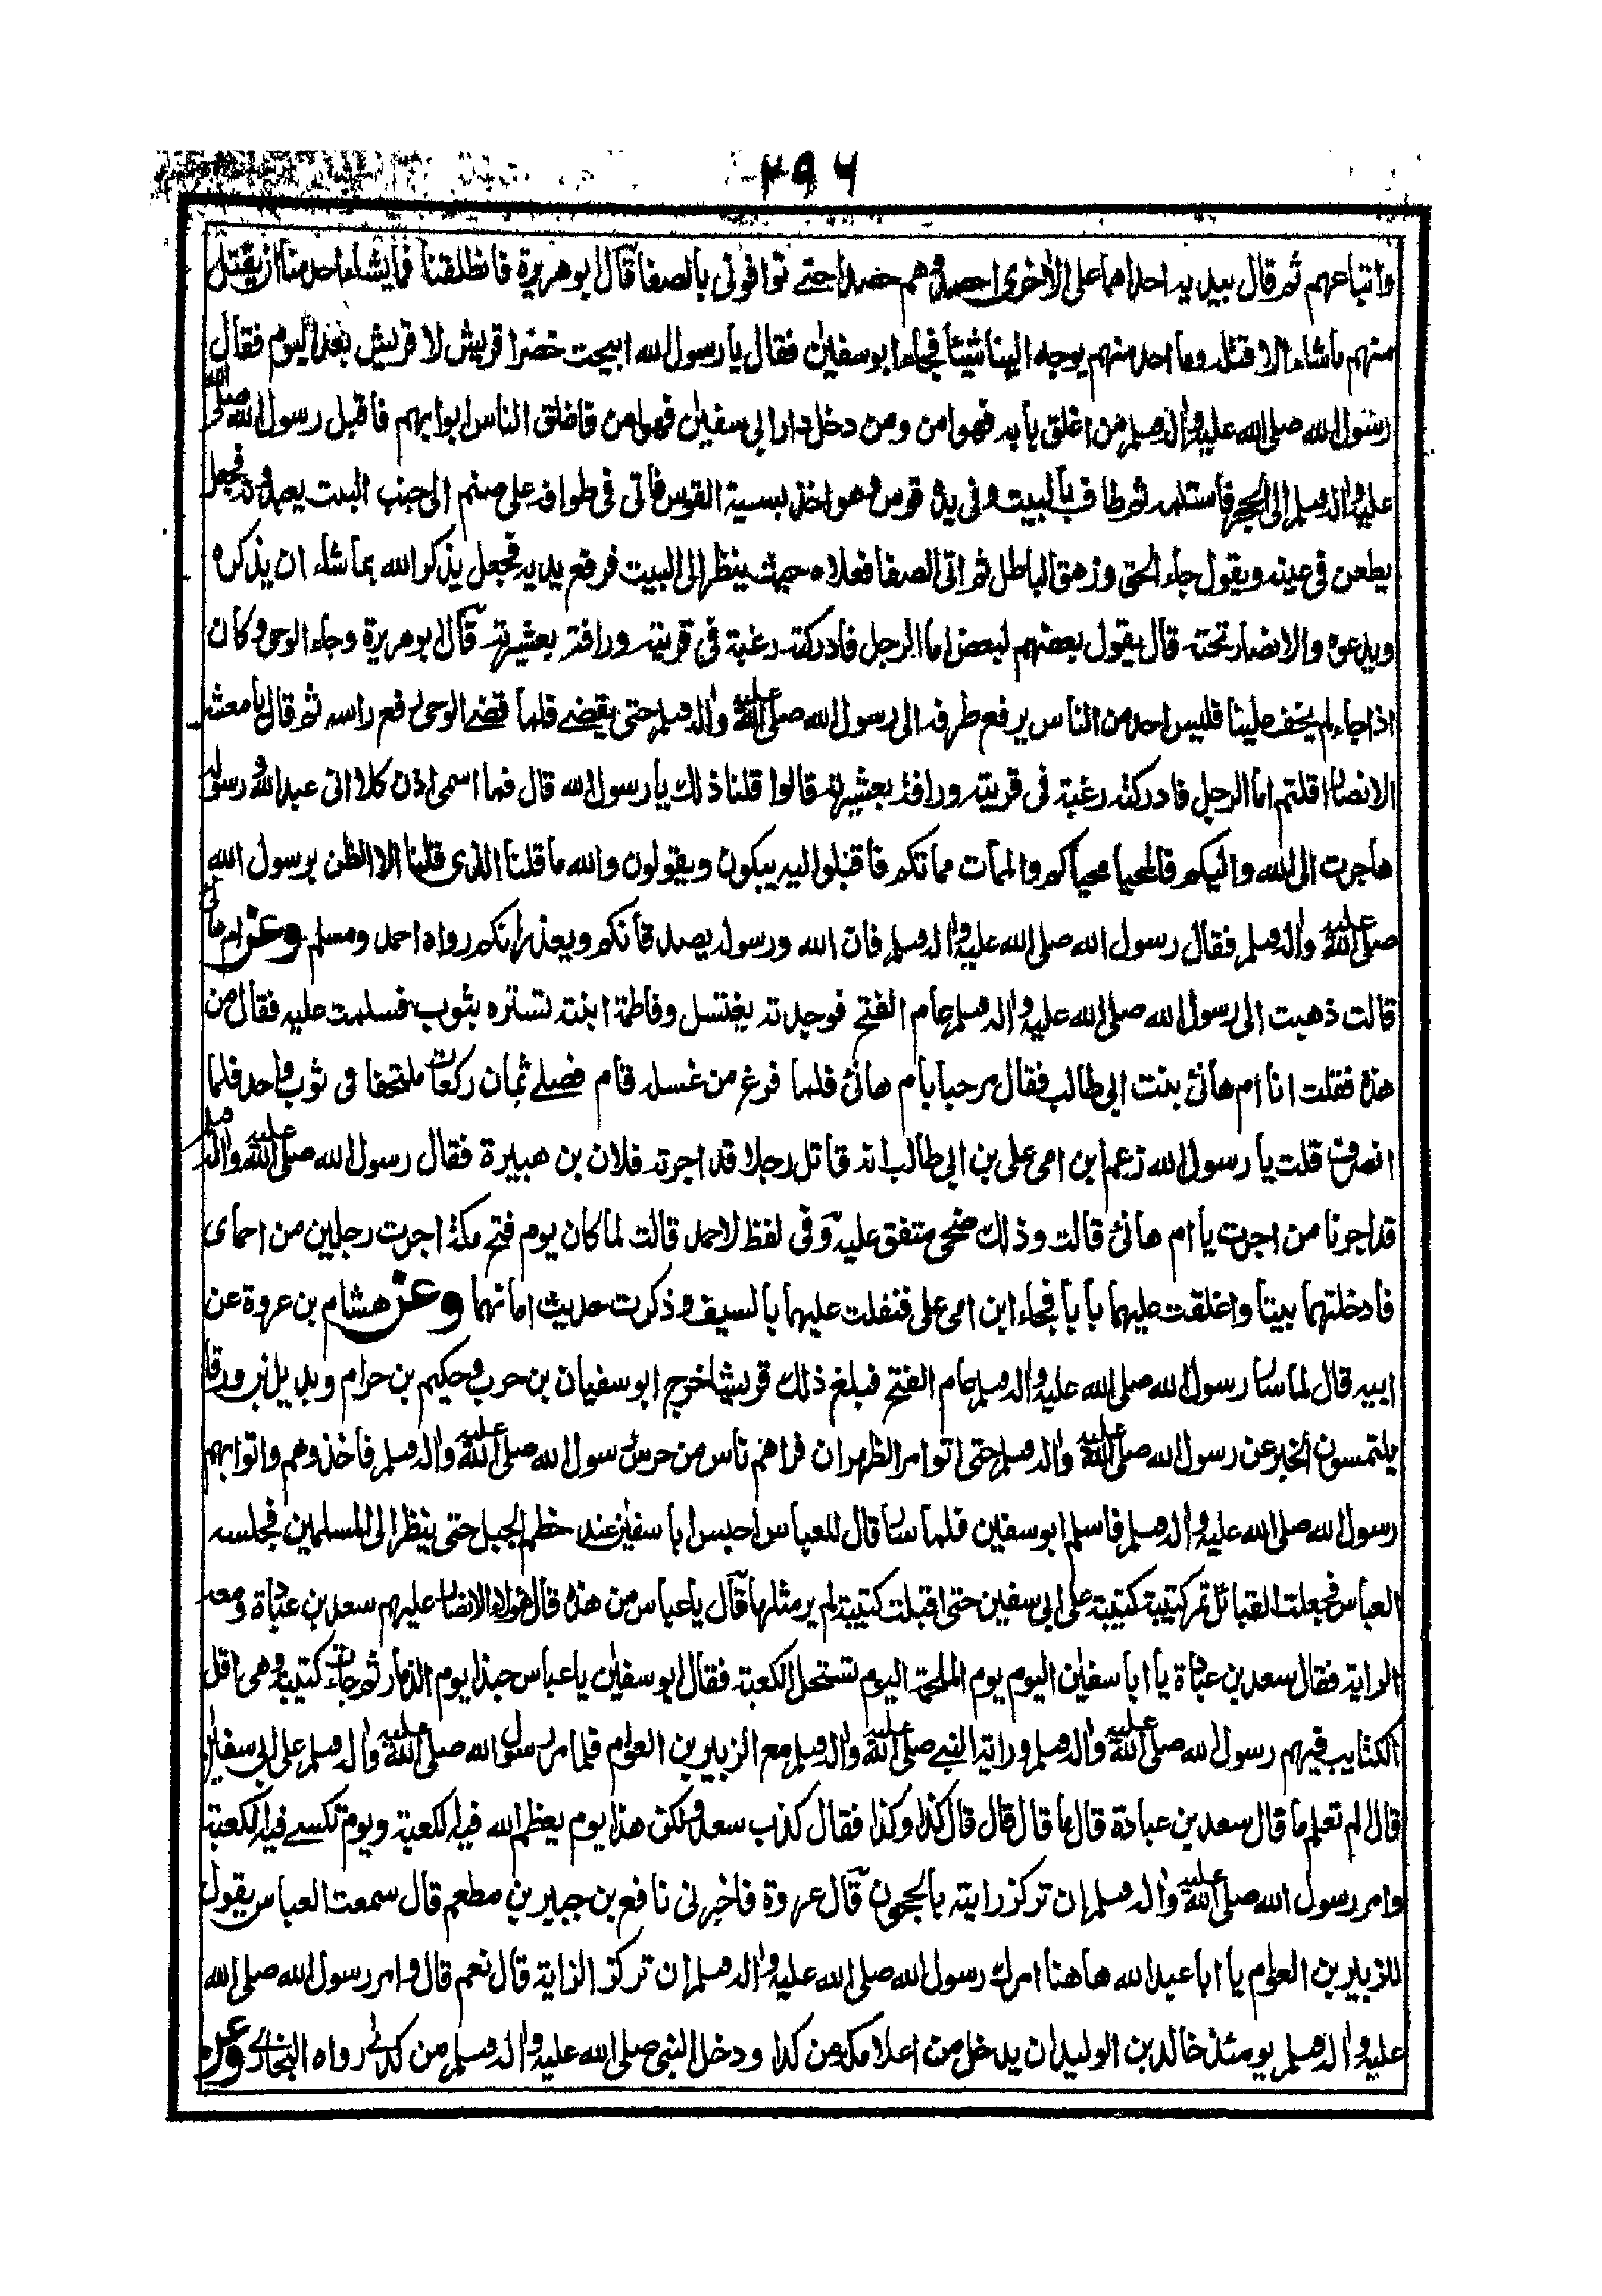 ٢٩٦
واتباعهم ثم قال بيديه احداهما على الاخرى احصدوهم حصدا حتے توافونى بالصفا قال ابو هريرة فانطلقنا فما يشاء احد منا ان يقتل
منهم ماشاء الا قتله وما احد منهم يوجه الينا شيئا فجاء ابو سفين فقال يا رسول الله ابيحت خضرا قريش لا قريش بعد اليوم فقال
رسول الله صلى الله عليه واله وسلم من اغلق بابه فهو امن ومن دخل دار ابى سفين فهو امن فاغلق الناس ابوابهم فاقبل رسول الله صلى الله
عليه واله وسلم الى الحجر فاستلمه ثم طاف بالبيت وفى يده قوس وهو اخذ بسية القوس فاتى فى طوافه على صنم الى جنب البيت يعبدونه فجعل
يطعن فى عينه ويقول جاء الحق وزهق الباطل ثم اتى الصفا فعلاه حيث ينظر الى البيت فرفع يديه فجعل يذكر الله بما شاء ان يذكره
ويدعوه والانصار تحته قال يقول بعضهم لبعض اما الرجل فادركته رغبة فى قريته ورافة بعشيرته قال ابو هريرة وجاء الوحى وكان
اذا جاء لم يخف علينا فليس احد من الناس يرفع طرفه الى رسول الله صلى الله عليه واله وسلم حتى يقضے فلما قضے الوحى رفع راسه ثم قال يا معشر
الانصار اقلتم اما الرجل فادركته رغبة فى قريته ورافة بعشيرته قالوا قلنا ذلك يا رسول الله قال فما اسمى اذن كلا انى عبد الله ورسوله
هاجرت الى الله واليكم فالمحيا محياكم والممات مماتكم فاقبلوا اليه يبكون ويقولون والله ما قلنا الذى قلنا الا الظن برسول الله
صلى الله عليه واله وسلم فقال رسول الله صلى الله عليه واله وسلم فان الله ورسوله يصدقانكم ويعذرانكم رواه احمد ومسلم وعن ام هانى
قالت ذهبت الى رسول الله صلى الله عليه واله وسلم عام الفتح فوجدته يغتسل وفاطمة ابنته تستره بثوب فسلمت عليه فقال من
هذه فقلت انا ام هانئ بنت ابى طالب فقال مرحبا بام هانئ فلما فرغ من غسله قام فصلے ثمان ركعات ملتحفا فى ثوب واحد فلما
انصرف قلت يا رسول الله زعم ابن امى على بن ابى طالب انه قاتل رجلا قد اجرته فلان بن هبيرة فقال رسول الله صلى الله عليه واله وسلم
قد اجرنا من اجرت يا ام هانئ قالت وذلك ضحى متفق عليه وفى لفظ لاحمد قالت لما كان يوم فتح مكة اجرت رجلين من احماى
فادخلتهما بيتا واغلقت عليهما بابا فجاء ابن امى على فتفلت عليهما بالسيف وذكرت حديث امانهما وعن هشام بن عروة عن
ابيه قال لما سار رسول الله صلى الله عليه واله وسلم عام الفتح فبلغ ذلك قريشا خرج ابو سفيان بن حرب وحكيم بن حرام وبديل بن ورقا
يلتمسون الخبر عن رسول الله صلى الله عليه واله وسلم حتى اتوا مر الظهران فراهم ناس من حرس رسول الله صلى الله عليه واله وسلم فاخذوهم واتوا بهم
رسول الله صلى الله عليه واله وسلم فاسلم ابو سفين فلما سار قال للعباس احبس ابا سفين عند خطم الجبل حتى ينظر الى المسلمين فحبسه
العباس فجعلت القبائل تمر كتيبة كتيبة على ابى سفين حتى اقبلت كتيبة لم ير مثلها قال يا عباس من هذه قال هؤلاء الانصار عليهم سعد بن عبادة ومعه
الراية فقال سعد بن عبادة يا ابا سفين اليوم يوم الملحمة اليوم تستحل الكعبة فقال ابو سفين يا عباس حبذا يوم الذمار ثم جاءت كتيبة وهى اقل
الكتايب فيهم رسول الله صلى الله عليه واله وسلم وراية النبے صلى الله عليه واله وسلم مع الزبير بن العوام فلما مر رسول الله صلى الله عليه واله وسلم على ابى سفين
قال الم تعلم ما قال سعد بن عبادة قال ما قال قال قال كذا وكذا فقال كذب سعد ولكن هذا يوم يعظم الله فيه الكعبة ويوم تكسے فيه الكعبة
وامر رسول الله صلى الله عليه واله وسلم ان تركز رايته بالحجون قال عروة فاخبرنى نافع بن جبير بن مطعم قال سمعت العباس يقول
للزبير بن العوام يا ابا عبد الله هاهنا امرك رسول الله صلى الله عليه واله وسلم ان تركز الراية قال نعم قال وامر رسول الله صلى الله
عليه واله وسلم يومئذ خالد بن الوليد ان يدخل من اعلا مكة من كدا ودخل النبى صلى الله عليه واله وسلم من كدے رواه البخارے وعن